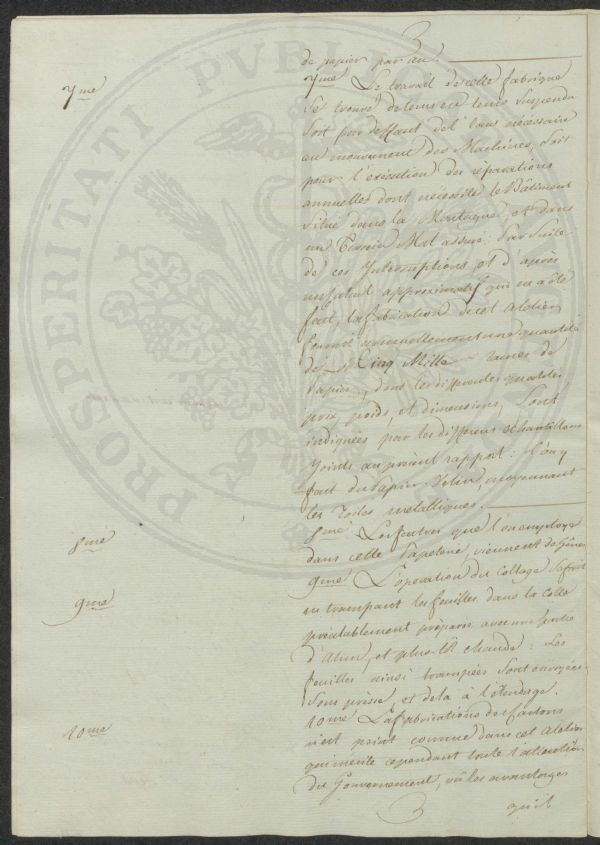 de papier par an.
7me
7me Le travail de cette fabrique
se trouve de tems en tems suspendu
soit par deffaut de l'eau nécessaire
au mouvement des Machines, soit
pour l'exécution des réparations
annuelles dont nécessite le Bâtiment
situé dans la Montagne, et dans
un Terrein Mal assuré. Par suite
de ces Interruptions, et d'après
un état approximatif qui en a été
fait, la fabrication de cet Atelier
fournit annuellement une quantité
de Cinq Mille rames de
Papier, dont les différentes qualités
prix, poids, et dimensions, sont
indiquées par les différens échantillons
joints au présent rapport: L'on y
fait du Papier Velin, moyennant
les Toiles metalliques.
8me
8me Les feutres que l'on employe
dans cette Papeterie, viennent de Gênes
9me
9me L'opération du collage se fait
en trampant les feuilles dans la colle
préalablement préparée avec
d'Alun, et plus tôt chaude: Les
feuilles ainsi trampées sont
sous presse, et de là à l'étendage.
10me
10me La fabrications des Cartons
n'est point connue dans cet Atelier
qui mérite cependant toute l'attention
du Gouvernement, vû les avantages
qu'il
PROSPERITATI PVBLICÆ